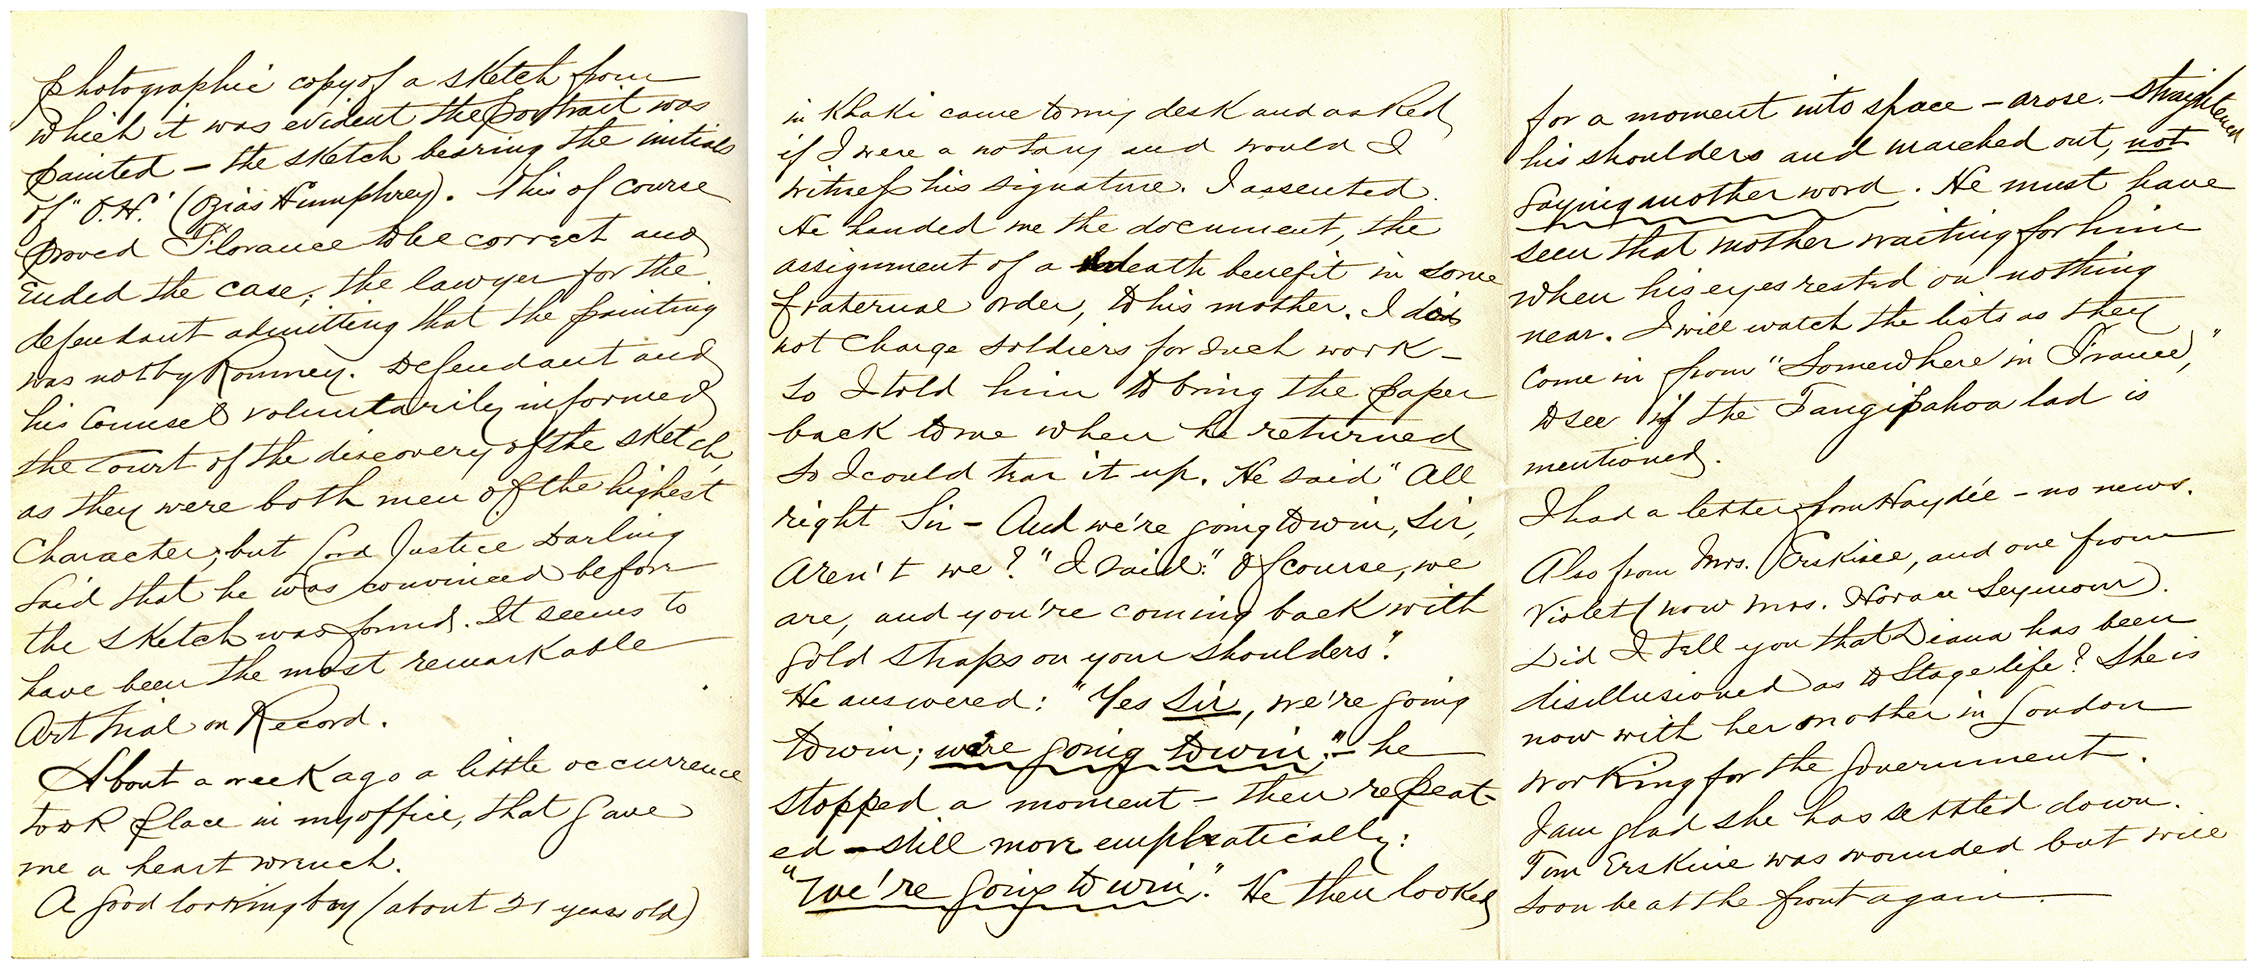 photographic copy of a sketch from
which it was evident the portrait was
painted – the sketch bearing the initials
of "O.H." (Ozias Humphrey). This of course
proved Florance to be correct and
ended the case; the lawyer for the
defendant admitting that the painting
was not by Romney. Defendant and
his Counsel voluntarily informed
the Court of the discovery of the sketch,
as they were both men of the highest
Character; but Lord Justice Darling
said that he was convinced before
the sketch was found. It seems to
have been the most remarkable
Art trial on Record.
About a week ago a little occurrence
took place in my office, that gave
me a heart wrench.
A good looking boy (about 21 years old)
in Khaki came to my desk and asked
if I were a notary and would I
witness his signature. I assented.
He handed me the document, the
assignment of a death benefit in some
fraternal order, to his mother. I do
not charge soldiers for such work –
so I told him to bring the paper
back to me when he returned
so I could tear it up. He said "All
right Sir – And we're going to win, Sir,
aren't we?" I said: "Of course, we
are, and you're coming back with
gold straps on your shoulders".
He answered: "Yes Sir, we're going
to win; we're going to win," – he
stopped a moment – then repeat-
ed – still more emphatically:
"We're going to win". He then looked
for a moment into space – arose – straightened
his shoulders and marched out, not
saying another word. He must have
seen that mother waiting for him
when his eyes rested on nothing
near. I will watch the lists as they
come in from "Somewhere in France,"
to see if the Tangipahoa lad is
mentioned.
I had a letter from Haydée – no news.
Also from Mrs. Erskine, and one from
Violet (now Mrs. Horace Seymour).
Did I tell you that Diana has been
disillusioned as to Stage life? She is
now with her mother in London
working for the Government.
I am glad she has settled down.
Tom Erskine was wounded but will
soon be at the front again.